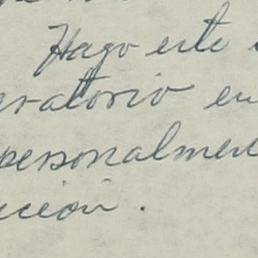 Hago este
ervatorio en
personalmen
cción.